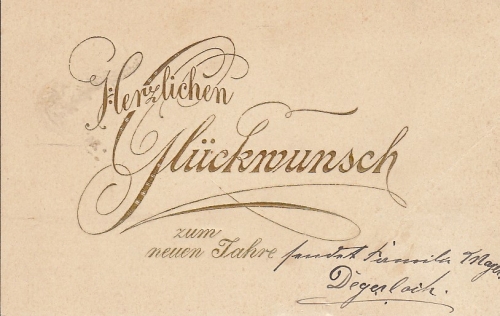 Herzlichen
Glückwunsch
zum
neuen Jahre
sendet Familie
Degerloch.